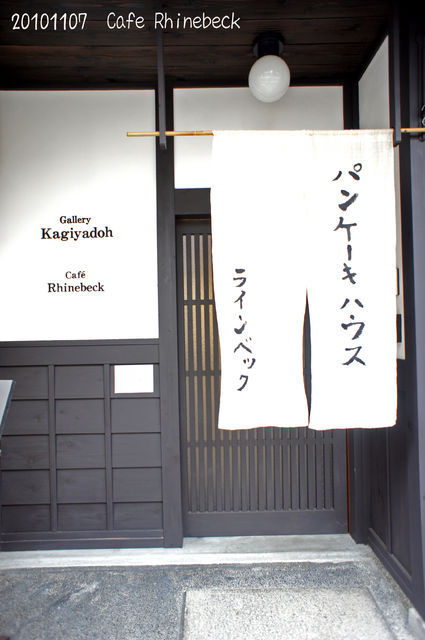 20101107 Cafe Rhinebeck
Gallery
Kagiyadoh
Café
Rhinebeck
パンケーキハウス
ラインベック